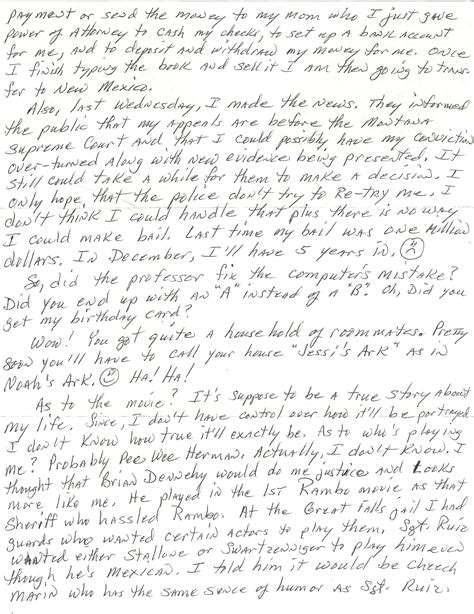 payment or send the money to my mom who I just gave
power of Attorney to cash my checks, to set up a bank account
for me, and to deposit and withdraw my money for me. Once
I finish typing the book and sell it I am then going to trans-
fer to New Mexico.
Also, last Wednesday, I made the news. They informed
the public that my Appeals are before the Montana
Supreme Court and that I could possibly have my conviction
over-turned along with new evidence being presented. It
still could take a while for them to make a decision. I
only hope, that the police don't try to Re-try me. I
don't think I could handle that plus there is no way
I could make bail. Last time my bail was one million
dollars. In December, I'll have 5 years in.
So, did the professor fix the computer's mistake?
Did you end up with an "A" instead of a "B". Oh, Did you
get my birthday card?
Wow! You got quite a household of roommates. Pretty
soon you'll have to call your house "Jessi's Ark" as in
Noah's Ark. Ha! Ha!
As to the movie? It's suppose to be a true story about
my life. Since, I don't have control over how it'll be portrayed
I don't know how true it'll exactly be. As to who's playing
me? Probably Pee Wee Herman. Actually, I don't know. I
thought that Brian Dennehy would do me justice and looks
more like me. He played in the 1st Rambo movie as that
Sheriff who hassled Rambo. At the Great Falls jail I had
guards who wanted certain actors to play them. Sgt. Ruiz
wanted either Stallone or Swartzenniger to play him even
though he's Mexican. I told him it would be Cheech
Marin who has the same sence of humor as Sgt. Ruiz.